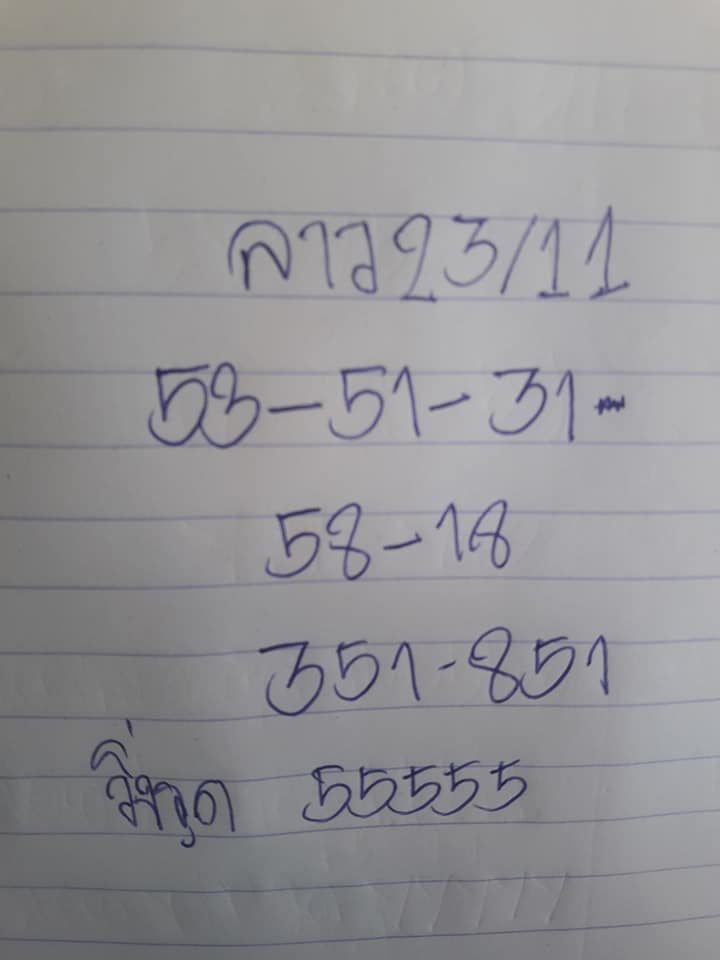 ลาว23/11
53-51-31-
58-18
351-851
วิ่งรูด 55555